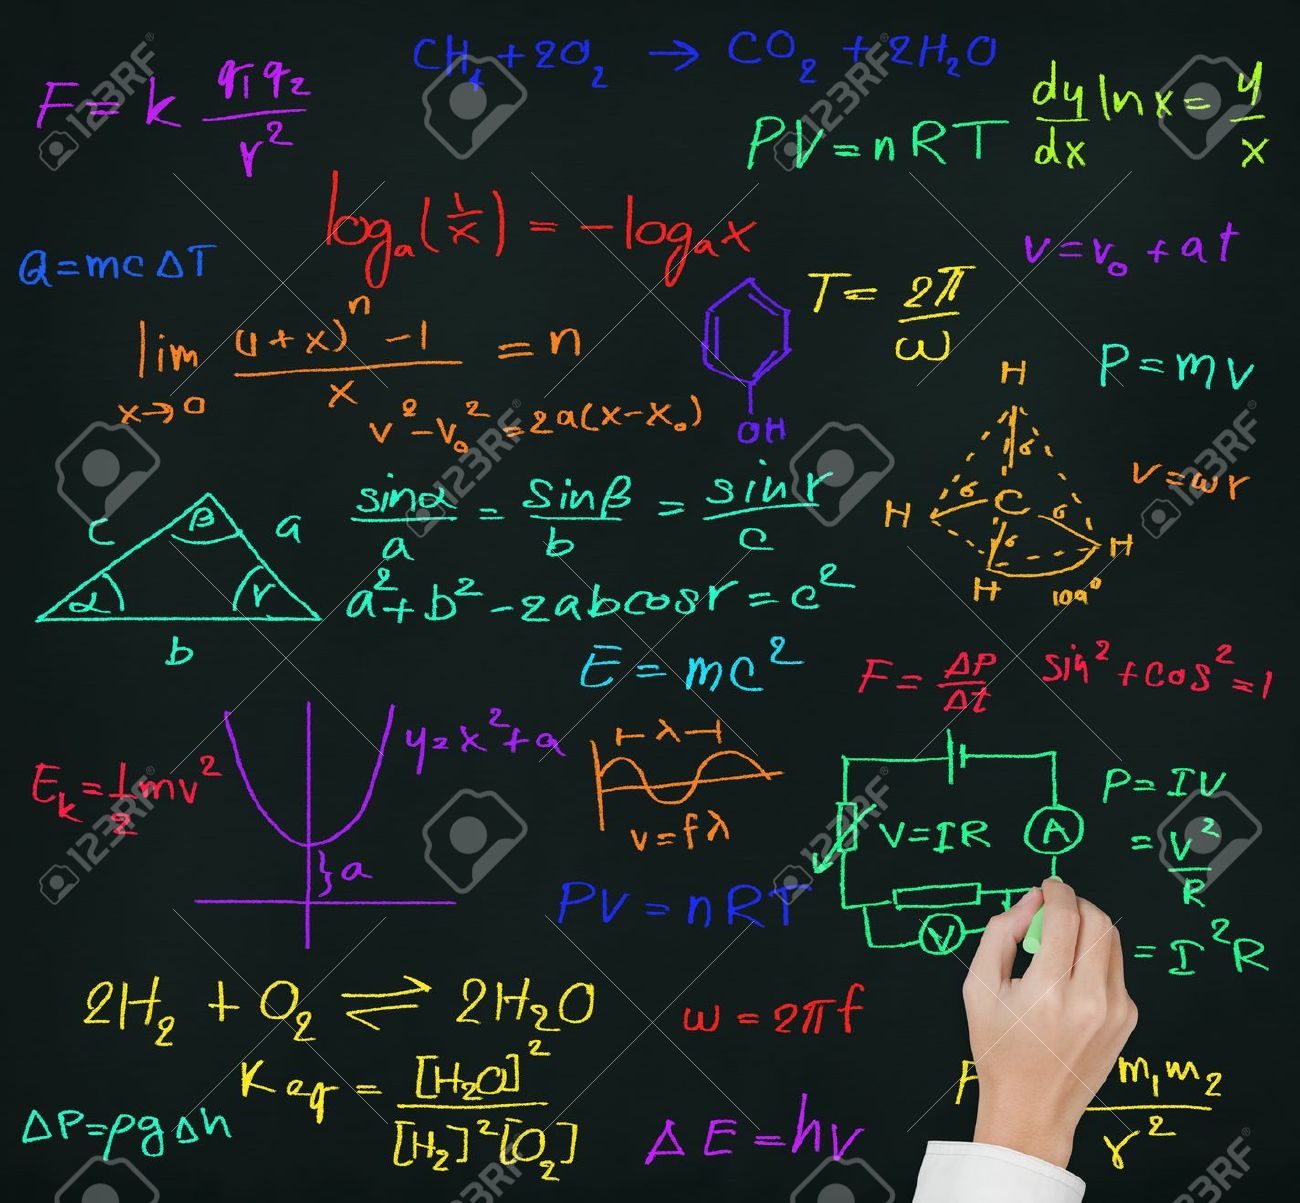 CH₄ + 2O₂ → CO₂ + 2H₂O
F = k q₁q₂/r²
PV = nRT
dy/dx ln x = y/x
logₐ(1/x) = -logₐx
v = v₀ + at
Q = mcΔT
T = 2π/ω
lim x→0 ((1+x)ⁿ - 1)/x = n
P = mv
v² - v₀² = 2a(x-x₀)
OH
H
σ
H σ C σ H
σ
H 109°
v = ωr
c β a
α r
b
sinα/a = sinβ/b = sinr/c
a² + b² - 2abcosr = c²
E = mc²
F = ΔP/Δt
sin² + cos² = 1
y = x² + a
a
Eₖ = 1/2 mv²
λ
v = fλ
V = IR
A
V
P = IV
= V²/R
= I²R
PV = nRT
2H₂ + O₂ ⇌ 2H₂O
ω = 2πf
Keq = [H₂O]²/[H₂]²[O₂]
m₁m₂/r²
ΔP = ρgΔh
ΔE = hv
123RF